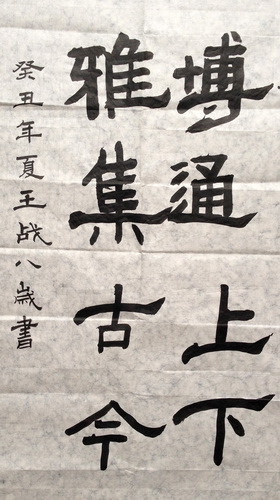 博通上下
雅集古今
癸丑年夏王战八岁書